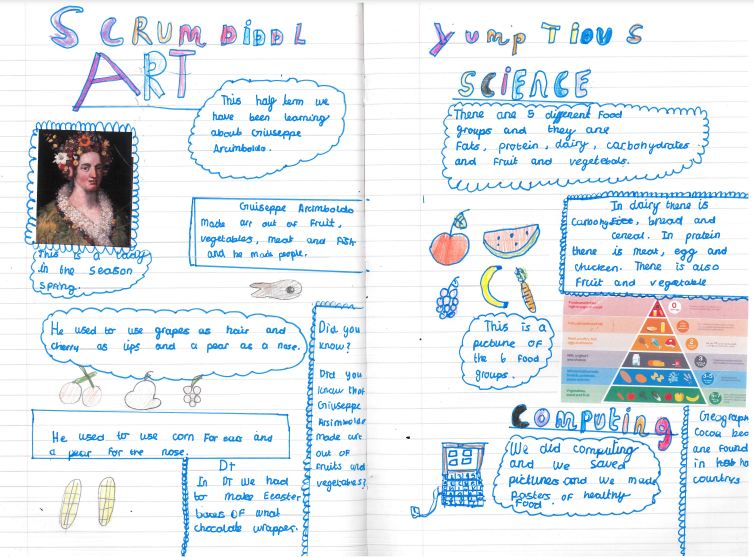 SCRUMDIDDL
ART
This half term we
have been learning
about Giuseppe
Arcimboldo.
This is a lady
in the season
spring.
Giuiseppe Arcimboldo
made art out of fruit,
vegetables, meat and fish
and he made people.
He used to use grapes as hair and
cherry as lips and a pear as a nose.
He used to use corn for ears and
a pear for the nose.
Dt
In DT we had
to make Eeaster
boxes of what
chocolate wrapper.
Did you
know?
Did you
know that
Giuseppe
made art
out of
fruits and
vegetables?
YumpTious
SCiENCE
There are 5 different food
groups and they are
Fats, protein, dairy, carbohydrates
and fruit and vegetabols.
In dairy there is
bread and
cereal. In protein
there is meat, egg and
chicken. There is also
fruit and vegetable
This is a
picture of
the 6 food
groups.
Computing
We did computing
and we saved
pictures and we made
posters of healthy
food.
Geograph
Cocoa bee
are found
in hot
countrys